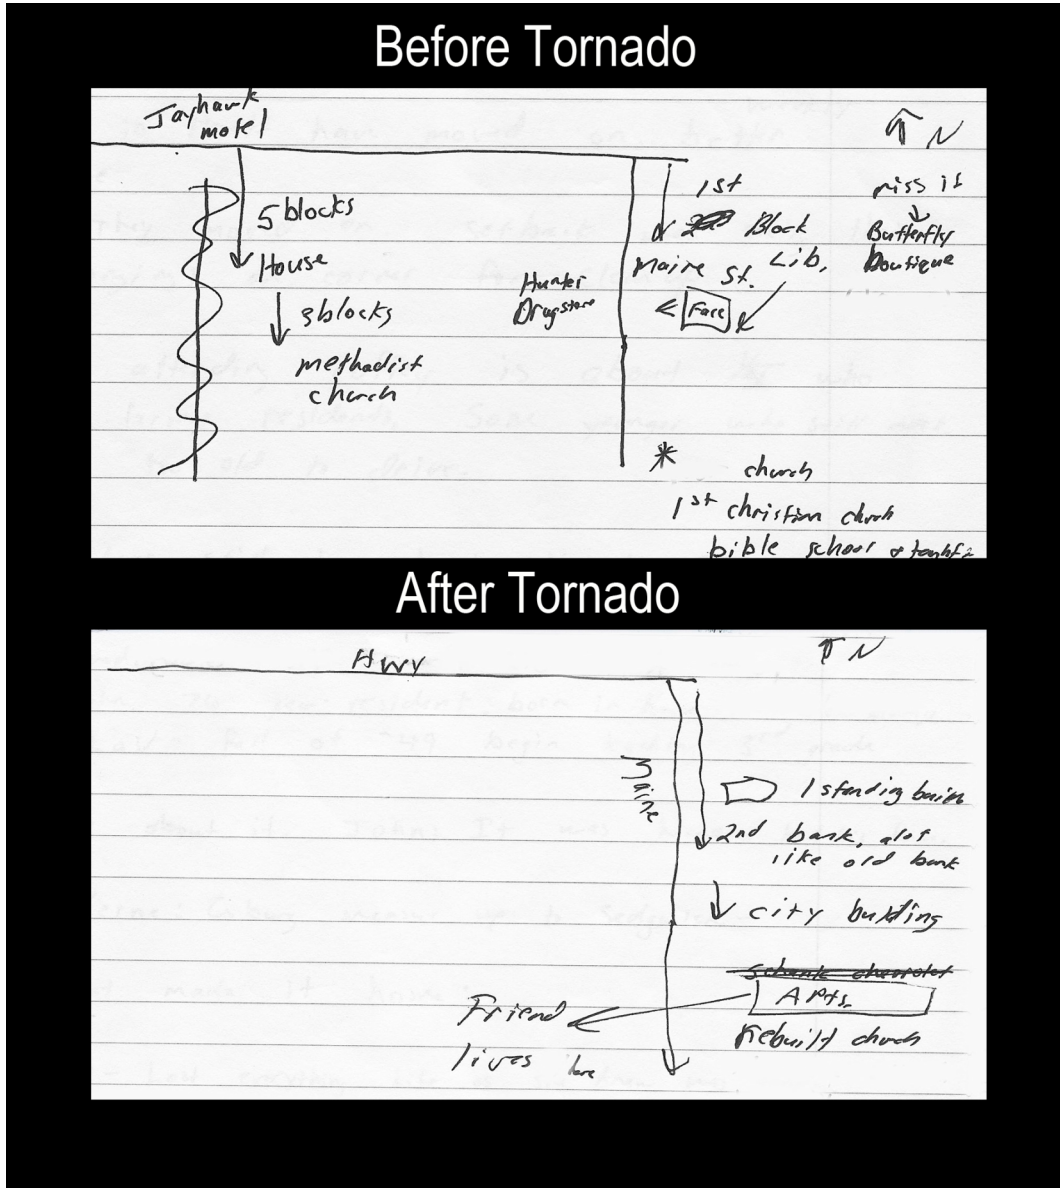 Before Tornado
Jayhawk
motel
↑ N
5 blocks
House
3 blocks
methodist
church
Hunter
Drugstore
1st
Block
Maine St.
Lib.
Face
miss it
Butterfly
Boutique
church
1st christian church
bible school
After Tornado
Hwy
↑ N
Maine
1 standing
2nd bank, alot
like old bank
city building
Apts.
rebuilt church
Friend
lives here